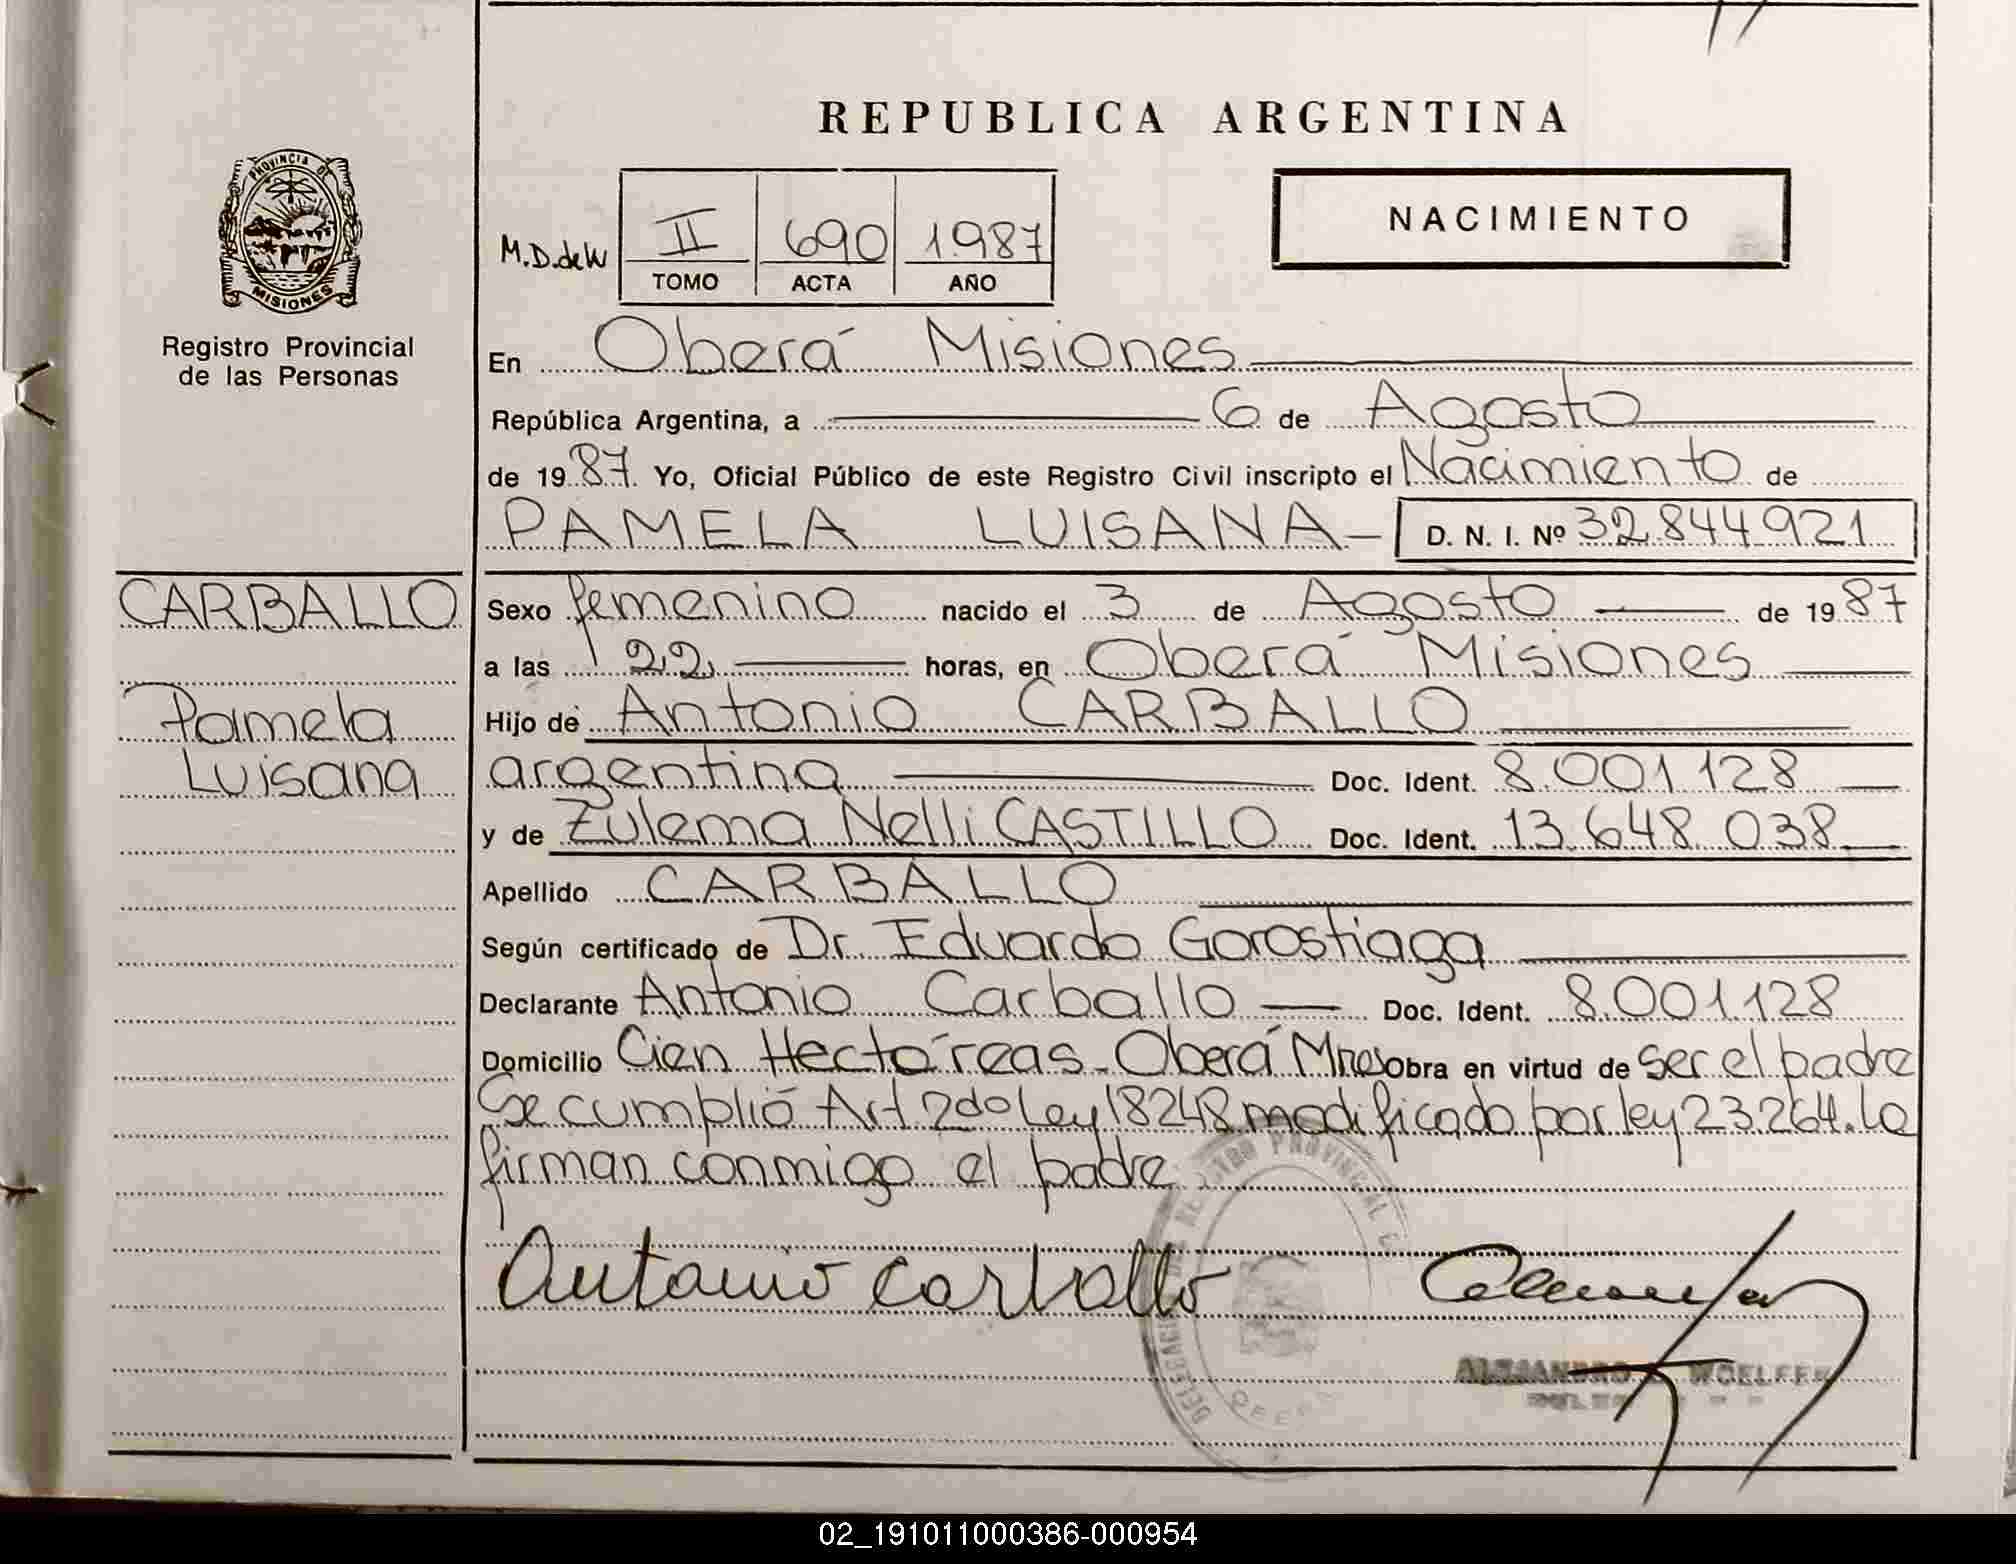 REPUBLICA ARGENTINA
PROVINCIA DE
MISIONES
Registro Provincial
de las Personas
NACIMIENTO
M.D.deW
II 690 1987
TOMO ACTA AÑO
En Oberá Misiones
República Argentina, a 6 de Agosto
de 1987. Yo, Oficial Público de este Registro Civil inscripto el Nacimiento de
PAMELA LUISANA D. N. I. Nº 32.844.921
CARBALLO
Pamela
Luisana
Sexo femenino nacido el 3 de Agosto de 1987
a las 22 horas, en Oberá Misiones
Hijo de Antonio CARBALLO
argentina Doc. Ident. 8.001.128
y de Zulema Nelli CASTILLO Doc. Ident. 13.648.038
Apellido CARBALLO
Según certificado de Dr. Eduardo Gorostiaga
Declarante Antonio Carballo Doc. Ident. 8.001.128
Domicilio Cien Hectóreas - Oberá Mnes Obra en virtud de ser el padre
Se cumplió Art 2do Ley 18248 modificado por ley 23.264. La
firman conmigo el padre
Antonio Carballo
REGISTRO PROVINCIAL
ALEJANDRO WOELFER
02_191011000386-000954